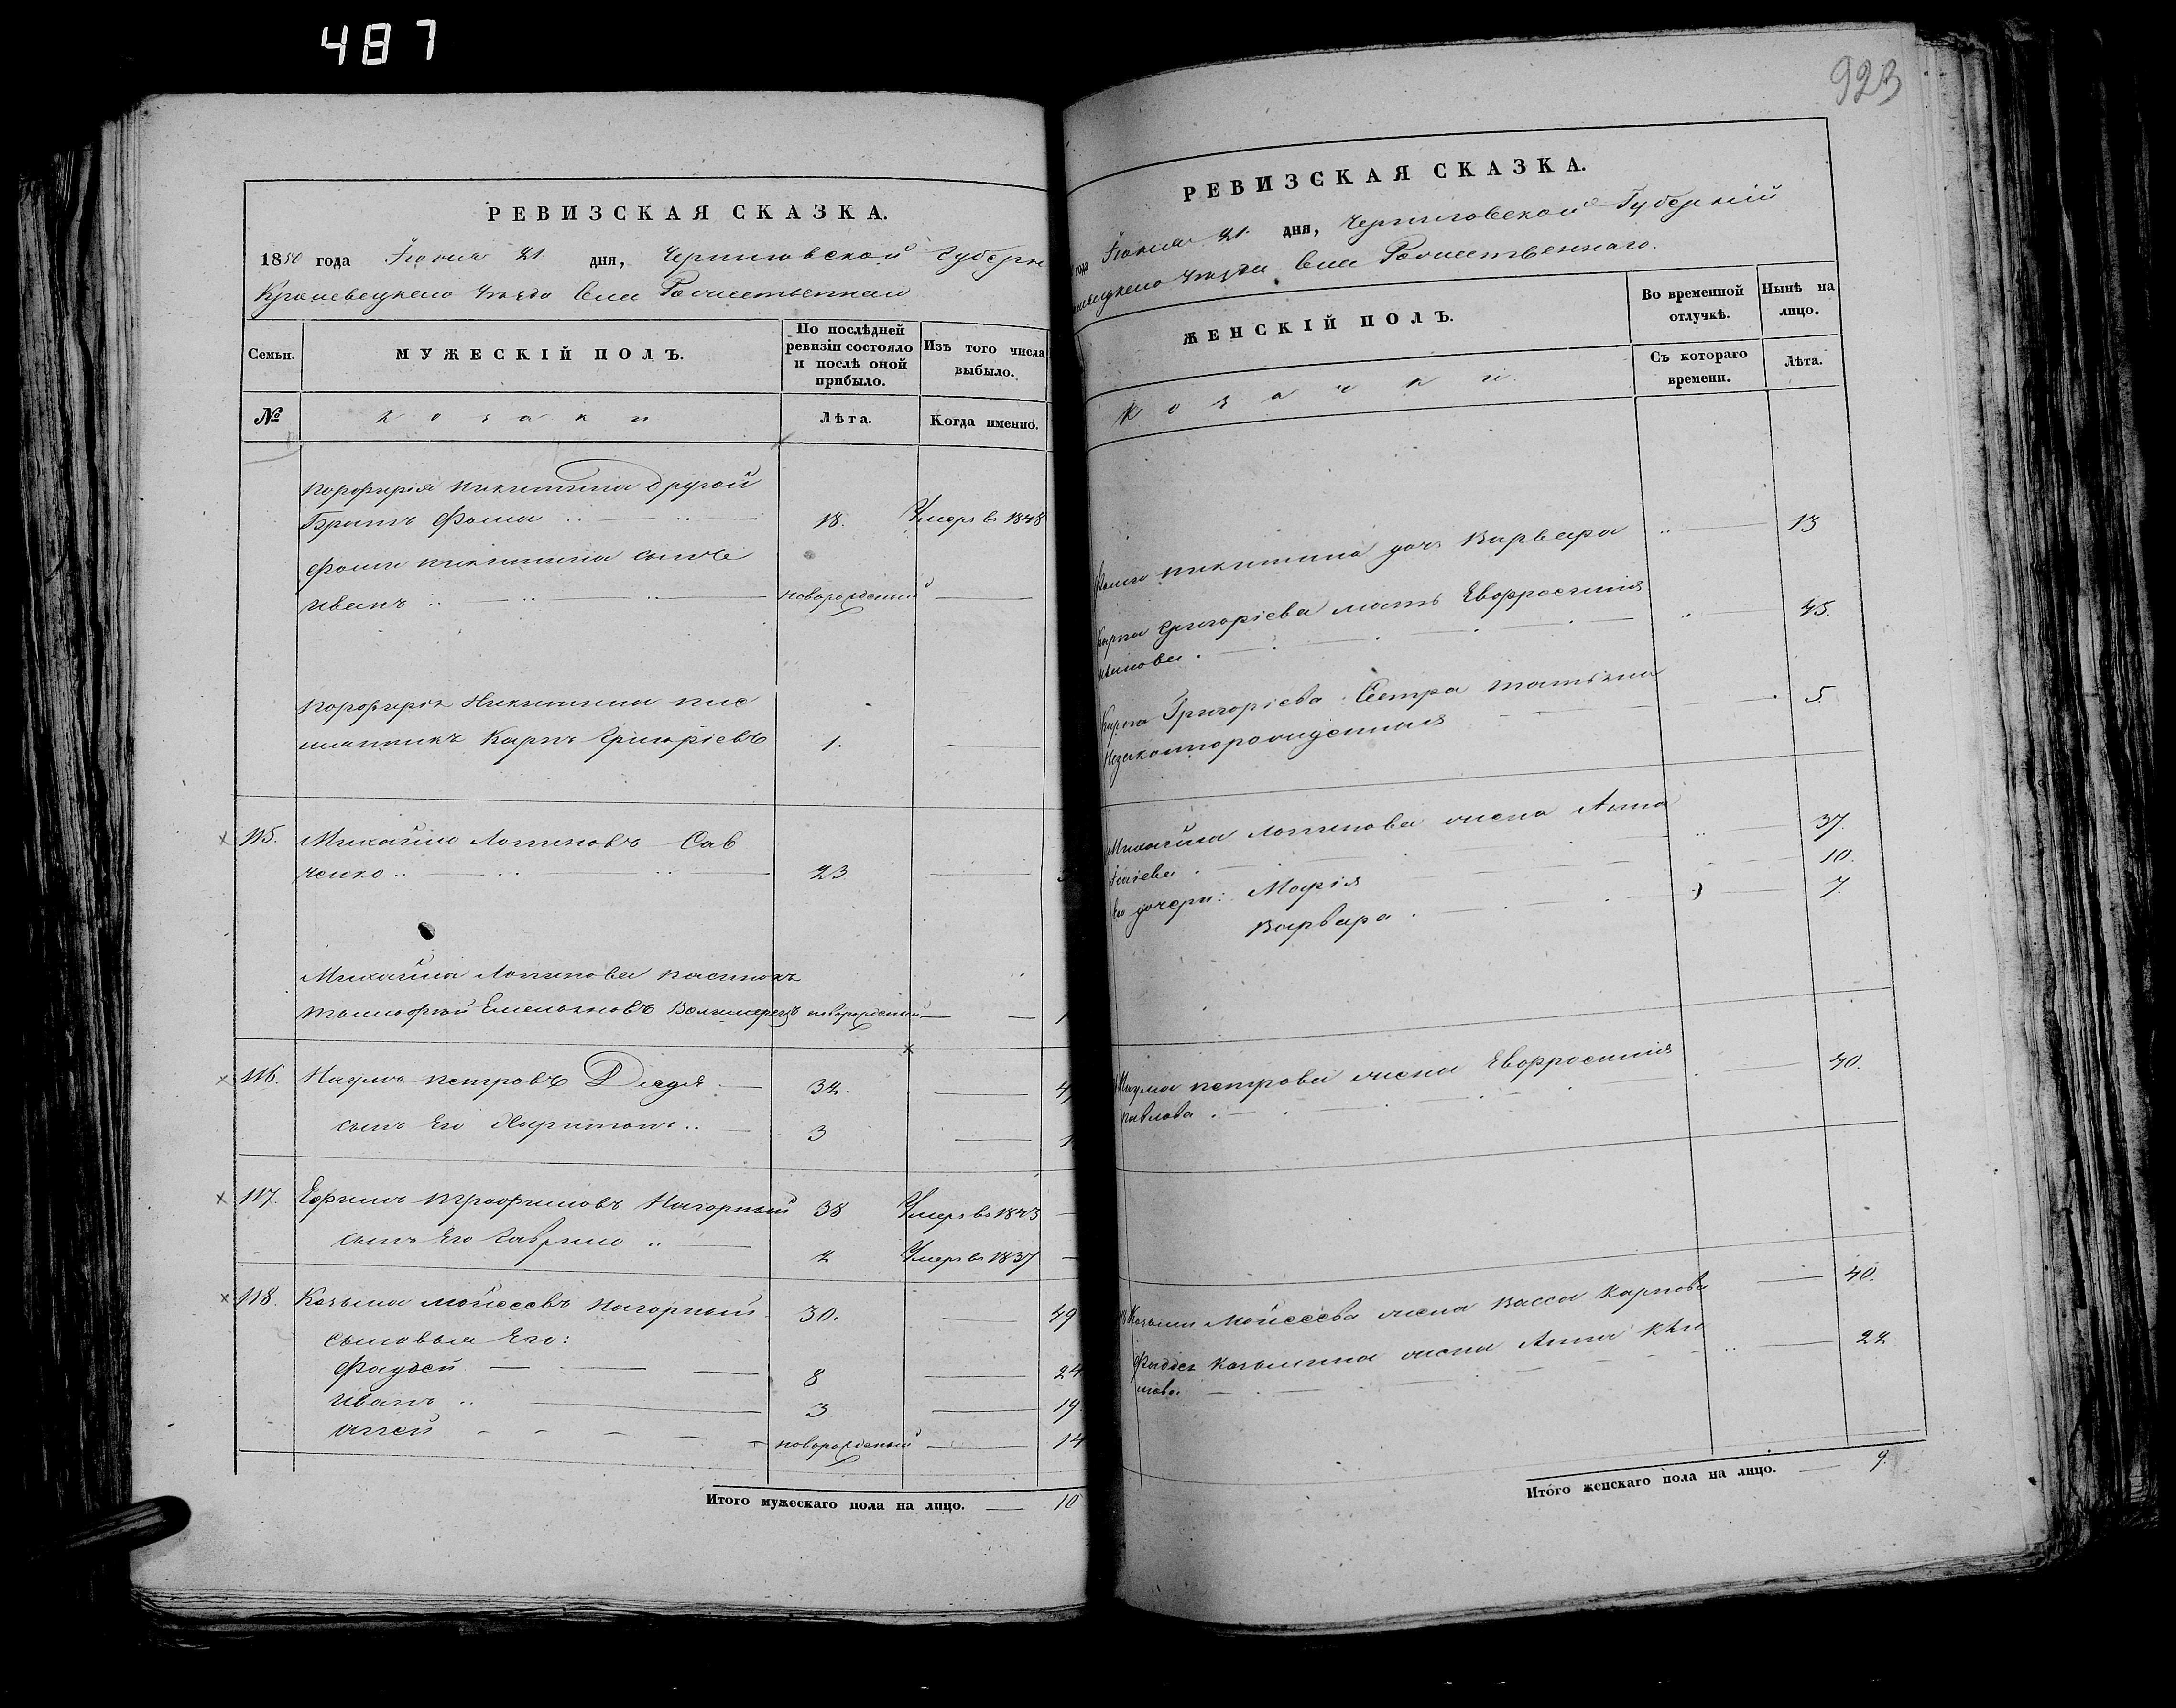 487
РЕВИЗСКАЯ СКАЗКА.
1850 года Іюня 21 дня, Черниговской Губерн
Кролевецкаго Уезда Села Рожественнаго
Семьи.
МУЖЕСКІЙ ПОЛЪ.
По послѣдней ревизіи состояло и послѣ оной прибыло.
Изъ того числа выбыло.
№
Козаки
Лѣта.
Когда именно.
Порфирія Никитина другой
Братъ Фома 18. Умеръ въ 1848
Фомы Никитина сынъ
Иванъ новорожденный
Порфирія Никитина пле
мянникъ Карпъ Григоріевъ 1.
115. Михайло Логиновъ Сав
ченко 23
Михайла Логинова пасынокъ
Тимофѣй Емельяновъ новорожденный
116. Наумъ Петровъ Дядя 32. 4
сынъ Его Харитонъ 3 1
117. Ефимъ Трофимовъ Нагорный 38 Умеръ въ 1843
сынъ Его Гаврило 2 Умеръ въ 1837
118. Козьма Мойсеевъ Нагорный 30. 49
сыновья Его:
Фаддей 8 24
Иванъ 3 19.
новорожденый 14
Итого мужескаго пола на лицо. 10
923
РЕВИЗСКАЯ СКАЗКА.
года Іюня 21. дня, Черниговской Губерніи
Уезда Села Рожественнаго.
ЖЕНСКІЙ ПОЛЪ.
Во временной отлучкѣ.
Нынѣ на лицо.
Съ котораго времени.
Лѣта.
Козачки
Фомы Никитина дочь Варвара 13
Карпа Григоріева мать Евфросинія 45.
Карпа Григоріева Сестра Татьяна
Незаконнорожденная 5.
Михайла Логинова жена Анна 37.
Его дочери: Марія 10.
Варвара 7.
Наума Петрова жена Евфросинія 40.
Павлова
Козьмы Мойсеева жена Васса Карпова 40.
Фаддея Козьмина жена Анна Кли 22
мова
Итого женскаго пола на лицо. 9.